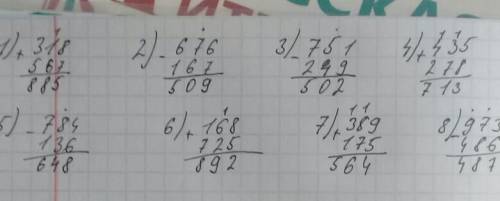 1) + 318 2) - 676 3) - 751 4) + 435
567 167 249 278
885 509 502 713
5) - 784 6) + 168 7) + 389 8) - 973
136 725 175 486
648 892 564 487